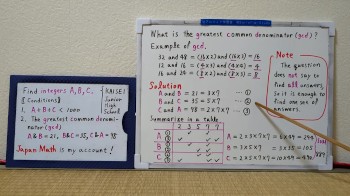 Find integers A, B, C.
KAISEI
Junior
High
School
[Conditions]
1. A+B+C < 1000
2. The greatest common denomina-
tor (gcd)
A & B = 21, B & C = 35, C & A = 98
Japan Math is my account!
What is the greatest common denominator (gcd)?
Example of gcd,
32 and 48 = (16×2) and (16×3) = 16
12 and 16 = (4×3) and (4×4) = 4
16 and 24 = (8×2) and (8×3) = 8
Note
The question
does not say to
find all answers,
So it is enough to
find one set of
answers.
Solution
A and B = 21 = 3×7 … ①
B and C = 35 = 5×7 … ②
C and A = 98 = 2×7×7 … ③
Summarize in a table
2 3 5 7 7
A
B
C
A = 2×3×7×7 = 6×49 = 294
B = 3×5×7 = 3×35 = 105
C = 2×5×7×7 = 10×49 = 490